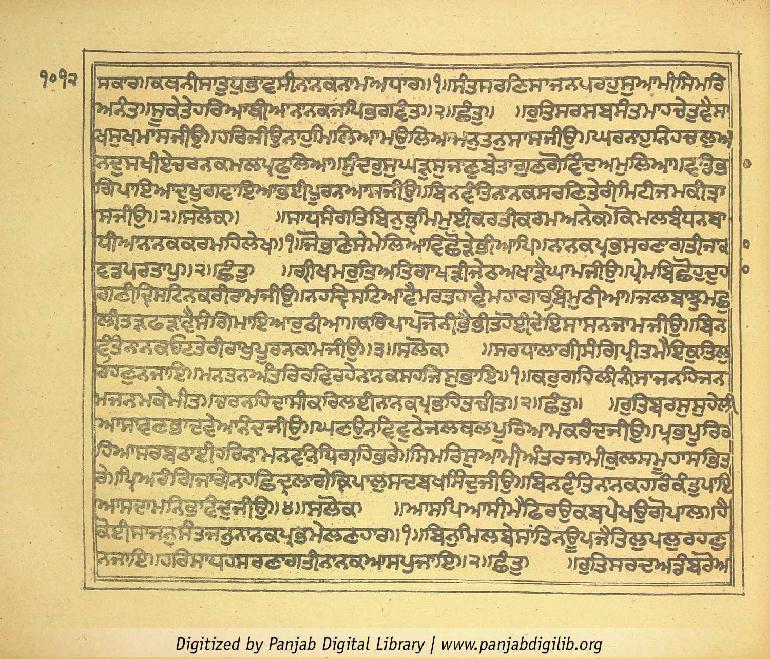 ੧੦੧੨
ਸਕਾਰ॥ਕਥਨੀਸਾਤੁਧੁਭਾਵਸੀਨਾਨਕਨਾਮਅਧਾਰ॥੧॥ਸੰਤਸਰਣਿਸਾਜਨਪਰਹੁਸੁਆਮੀਸਿਮਰਿ
ਅਨੰਤ॥ਸੂਕੇਤੇਹਰਿਆਥੀਆਨਾਨਕਜਪਿਭਗਵੰਤ॥੨॥ਛੰਤੁ॥ ॥ਰੁਤਿਸਰਸਬਸੰਤਮਾਹਚੇਤੁਵੈਸਾ
ਖਸੁਖਮਾਸਜੀਉ॥ਹਰਿਜੀਉਨਾਹੁਮਿਲਿਆਮਉਲਿਆਮਨਤਨਸਾਸਜੀਉ॥ਘਰਨਾਹੁਨਿਹਚਲੁਅ
ਨਦੁਸਖੀਏਚਰਨਕਮਲਪ੍ਰਫੁਲਿਆ॥ਸੁੰਦਰੁਸੁਘੜੁਸੁਜਾਣੁਬੇਤਾਗੁਣਗੋਵਿੰਦਅਮੁਲਿਆ॥ਵਡਭਾ
ਗਿਪਾਇਆਦੁਖੁਗਵਾਇਆਭਈਪੂਰਨਆਸਜੀਉ॥ਬਿਨਵੰਤਿਨਾਨਕਸਰਣਿਤੇਰੀਮਿਟੀਜਮਕੀਤ੍ਰਾ
ਸਜੀਉ॥੨॥ਸਲੋਕ॥ ॥ਸਾਧਸੰਗਤਿਬਿਨੁਭ੍ਰਮਿਮੁਈਕਰਤੀਕਰਮਅਨੇਕ॥ਕੋਮਲਬੰਧਨਬਾ
ਧੀਆਨਾਨਕਕਰਮਹਿਲੇਖ॥੧॥ਜੋਭਾਣੇਸੇਮੇਲਿਆਵਿਛੋੜੇਭੀਆਪਿ॥ਨਾਨਕਪ੍ਰਭਸਰਣਾਗਤੀਜਾਕਾ
ਵਡਪਰਤਾਪੁ॥੨॥ਛੰਤੁ ॥ਗ੍ਰੀਖਮਰੁਤਿਅਤਿਗਾਖੜੀਜੇਠਅਖਾੜੈਘਾਮਜੀਉ॥ਪ੍ਰੇਮਬਿਛੋਹਦੁਹਾ
ਗਣੀਦ੍ਰਿਸਟਿਨਕਰੀਰਾਮਜੀਉ॥ਨਹਦ੍ਰਿਸਟਿਆਵੈਮਰਤਹਾਵੈਮਹਾਗਾਰਬਿਮੁਠੀਆ॥ਜਲਬਾਝੁਮਛੁ
ਲੀਤੜਫੜਾਵੈਸੰਗਿਮਾਇਆਰੁਠੀਆ॥ਕਰਿਪਾਪਜੋਨੀਭੈਭੀਤਹੋਈਦੇਇਸਾਸਨਜਾਮਜੀਉ॥ਬਿਨ
ਵੰਤਿਨਾਨਕਓਟਤੇਰੀਰਾਖੁਪੂਰਨਕਾਮਜੀਉ॥੩॥ਸਲੋਕ ॥ਸਰਧਾਲਾਗੀਸੰਗਿਪ੍ਰੀਤਮੈਇਕੁਤਿਲੁ
ਰਹਣੁਨਜਾਇ॥ਮਨਤਨਅੰਤਰਿਰਵਿਰਹੇਨਾਨਕਸਹਜਿਸੁਭਾਇ॥੧॥ਕਰੁਗਹਿਲੀਨੀਸਾਜਨਹਿਜਨ
ਮਜਨਮਕੇਮੀਤ॥ਚਰਨਹਦਾਸੀਕਰਿਲਈਨਾਨਕਪ੍ਰਭਹਿਤਚੀਤ॥੨॥ਛੰਤੁ॥ ॥ਰੁਤਿਬਰਸੁਸੁਹੇਲੀ
ਆਸਾਵਣਭਾਦਵੇਆਨੰਦਜੀਉ॥ਘਣਉਨਵਿਵੁਠੇਜਲਥਲਪੂਰਿਆਮਕਰੰਦਜੀਉ॥ਪ੍ਰਭਪੂਰਿਰ
ਹਿਆਸਰਬਠਾਈਹਰਿਨਾਮਨਵਨਿਧਿਗ੍ਰਿਹਭਰੇ॥ਸਿਮਰਿਸੁਆਮੀਅੰਤਰਜਾਮੀਕੁਲਸਮੂਹਾਸਭਿਤ
ਰੇ॥ਪ੍ਰਿਅਰੰਗਿਜਾਗੇਨਹਛਿਦ੍ਰਲਾਗੇਕ੍ਰਿਪਾਲੁਸਦਬਖਸਿੰਦੁਜੀਉ॥ਬਿਨਵੰਤਿਨਾਨਕਹਰਿਕੰਤੁਪਾਇ
ਆਸਦਾਮਨਿਭਾਵੰਦੁਜੀਉ॥੪॥ਸਲੋਕ ॥ਆਸਪਿਆਸੀਮੈਫਿਰਉਕਬਪੇਖਉਗੋਪਾਲ॥ਹੈ
ਕੋਈਸਾਜਨੁਸੰਤਜਨੁਨਾਨਕਪ੍ਰਭਮੇਲਣਹਾਰ॥੧॥ਬਿਨੁਮਿਲਬੇਸਾਂਤਿਨਊਪਜੈਤਿਲੁਪਲੁਰਹਣੁ
ਨਜਾਇ॥ਹਰਿਸਾਧਹਸਰਣਾਗਤੀਨਾਨਕਆਸਪੁਜਾਇ॥੨॥ਛੰਤੁ ॥ਰੁਤਿਸਰਦਅਡੰਬਰੋਅ
Digitized by Panjab Digital Library | www.panjabdigilib.org